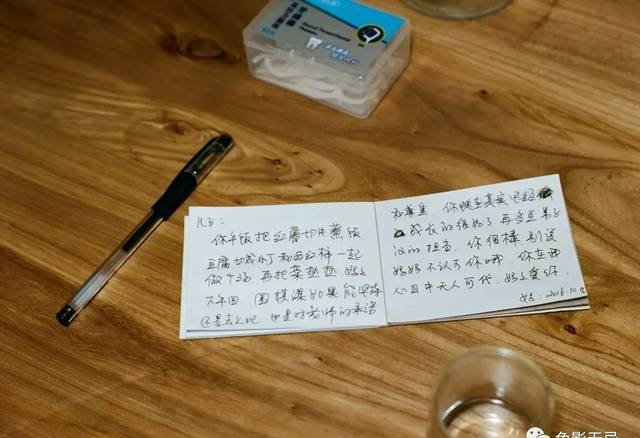 儿子：
你午饭把红薯切片蒸饭
豆腐切成丁和西红柿一起
做个汤 再把菜热热 妈妈
下午回 围棋课如果能坚持
还是去上吧 也是对老师的承诺
和尊重. 你现在其实已经
成长的很好了 再多点男子
汉的担当. 你很棒 别说
妈妈不认可你哦. 你在我
心目中无人可代. 妈妈爱你.
妈妈. 2016.10.